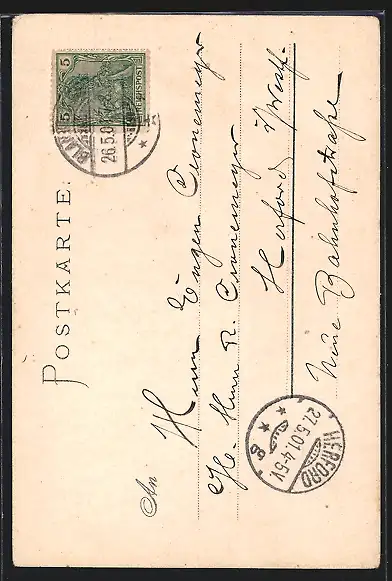 POSTKARTE.
5 REICHSPOST 5
BLAN
26.5.0
An
Herrn Eugen Cronemeyer
Herrn R. Cronemeyer
Herford i/Westf.
Neue Bahnhofstraße
HERFORD
27.5.01.4-5V.
* * g